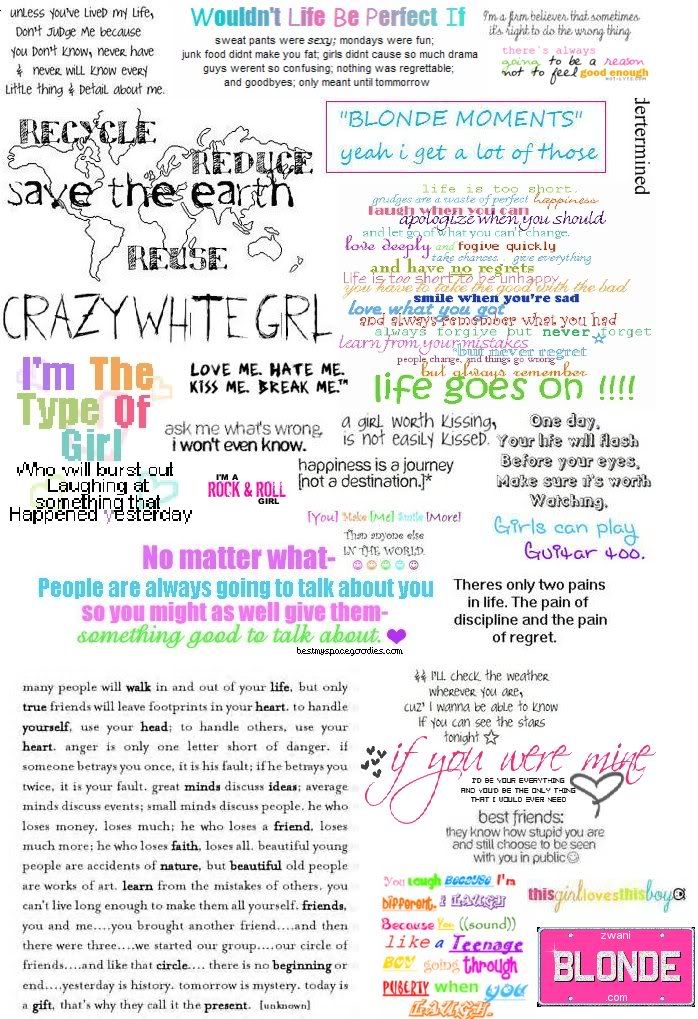 unless you've Lived my Life,
Don't Judge Me because
you Don't Know, never have
& never will Know every
Little thing & Detail about me.
Wouldn't Life Be Perfect If
sweat pants were sexy; mondays were fun;
junk food didnt make you fat; girls didnt cause so much drama
guys werent so confusing; nothing was regrettable;
and goodbyes; only meant until tommorrow
I'm a firm believer that sometimes
it's right to do the wrong thing
there's always
going to be a reason
not to feel good enough
RECYCLE
REDUCE
save the earth
REUSE
"BLONDE MOMENTS"
yeah i get a lot of those
dertermined
life is too short.
grudges are a waste of perfect happiness
laugh when you can
apologize when you should
and let go of what you can't change.
love deeply and fogive quickly
take chances. . give everything
and have no regrets
Life is too short to be unhappy
you have to take the good with the bad
smile when you're sad
love what you got
and always remember what you had
always forgive but never forget
learn from your mistakes
but never regret
people change, and things go wrong
but always remember
life goes on !!!!
CRAZYWHiTEGRL
I'm The
Type Of
Girl
Who will burst out
Laughing at
something that
Happened yesterday
LOVE ME. HATE ME.
KISS ME. BREAK ME.™
ask me what's wrong,
i won't even know.
a girl worth kissing,
is not easily kissed.
One day,
Your life will flash
Before your eyes,
Make sure it's worth
Watching.
I'M A
ROCK & ROLL
GIRL
happiness is a journey
[not a destination.]*
[You] Make [Me] Smile [More]
Than anyone else
IN THE WORLD.
Girls can play
Guitar too.
No matter what-
People are always going to talk about you
so you might as well give them-
something good to talk about.
bestmyspacegoodies.com
Theres only two pains
in life. The pain of
discipline and the pain
of regret.
many people will walk in and out of your life, but only
true friends will leave footprints in your heart. to handle
yourself, use your head; to handle others, use your
heart. anger is only one letter short of danger. if
someone betrays you once, it is his fault; if he betrays you
twice, it is your fault. great minds discuss ideas; average
minds discuss events; small minds discuss people. he who
loses money, loses much; he who loses a friend, loses
much more; he who loses faith, loses all. beautiful young
people are accidents of nature, but beautiful old people
are works of art. learn from the mistakes of others. you
can't live long enough to make them all yourself. friends,
you and me....you brought another friend....and then
there were three....we started our group....our circle of
friends....and like that circle.... there is no beginning or
end....yesterday is history. tomorrow is mystery. today is
a gift, that's why they call it the present. [unknown]
I'LL check the weather
wherever you are,
cuz' I wanna be able to know
If you can see the stars
tonight
if you were mine
I'D BE YOUR EVERYTHING
AND YOU'D BE THE ONLY THING
THAT I WOULD EVER NEED
best friends:
they know how stupid you are
and still choose to be seen
with you in public
You laugh BECAUSE I'm
Different, I LAUGH
Because You ((sound))
like a Teenage
BOY going through
PUBERTY when you
LAUGH.
thisgirllovesthisboy
zwani
BLONDE
.com